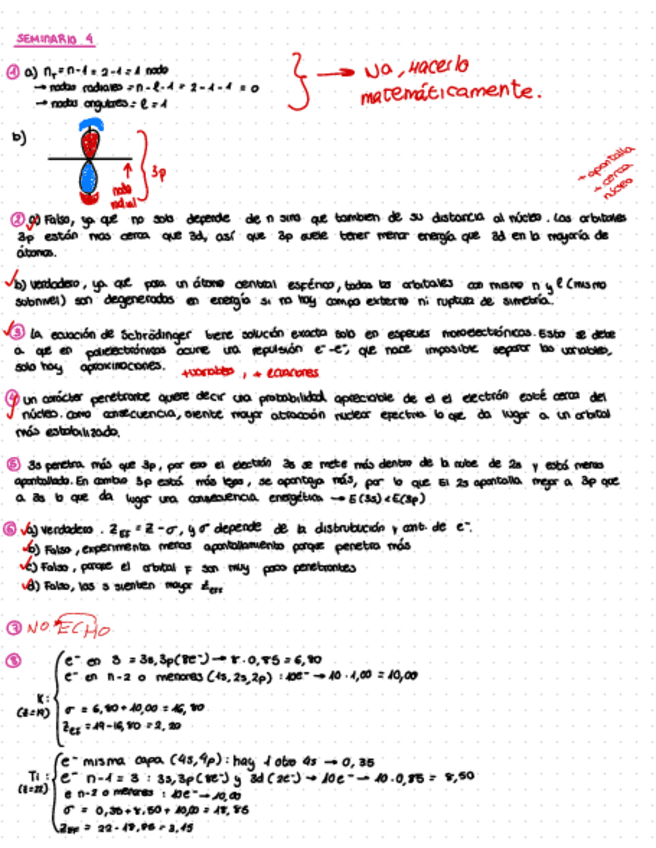 SEMINARIO 4
① a) n_T = n-1 = 2-1 = 1 nodo
→ nodos radiales = n-l-1 = 2-1-1 = 0
→ nodos angulares = l = 1
→ No, Hacerlo
matemáticamente.
b)
3p
nodo
radial
+ apantalla
+ cerca
núcleo
② a) Falso, ya que no solo depende de n sino que tambien de su distancia al núcleo. Los orbitales
3p están mas cerca que 3d, así que 3p suele tener menor energía que 3d en la mayoría de
átomos.
b) Verdadero, ya que para un átomo central esférico, todos los orbitales con mismo n y l (mismo
subnivel) son degenerados en energía si no hay campo externo ni ruptura de simetría.
③ La ecuación de Schrödinger tiene solución exacta solo en especies monoelectrónicas. Esto se debe
a que en polielectrónicos ocurre una repulsión e⁻-e⁻, que hace imposible separar las variables,
solo hay aproximaciones. +variables, + ecuaciones
④ un carácter penetrante quiere decir una probabilidad apreciable de el el electrón esté cerca del
núcleo. como consecuencia, siente mayor atracción nuclear efectiva lo que da lugar a un orbital
más estabilizado.
⑤ 3s penetra más que 3p, por eso el electrón 3s se mete más dentro de la nube de 2s y está menos
apantallado. En cambio 3p está más lejos, se apantalla más, por lo que El 2s apantalla mejor a 3p que
a 3s lo que da lugar una consecuencia energética → E(3s) < E(3p)
⑥ a) Verdadero. Z_EF = Z - σ, y σ depende de la distrubución y cant. de e⁻.
b) Falso, experimenta menos apantallamiento porque penetra más
c) Falso, porque el orbital F son muy poco penetrantes
d) Falso, las s sienten mayor Z_EFF
⑦ NO ECHO
⑧
e⁻ en 3 = 3s, 3p (8e⁻) → 8 · 0,85 = 6,80
e⁻ en n-2 o menores (1s, 2s, 2p) : 10e⁻ → 10 · 1,00 = 10,00
K:
(Z=19)
σ = 6,80 + 10,00 = 16,80
Z_EF = 19 - 16,80 = 2,20
e⁻ misma capa (4s, 4p) : hay 1 otro 4s → 0,35
Ti :
(Z=22)
e⁻ n-1 = 3 : 3s, 3p (8e⁻) y 3d (2e⁻) → 10e⁻ → 10 · 0,85 = 8,50
e n-2 o menores : 10e⁻ → 10,00
σ = 0,35 + 8,50 + 10,00 = 18,85
Z_EFF = 22 - 18,85 = 3,15